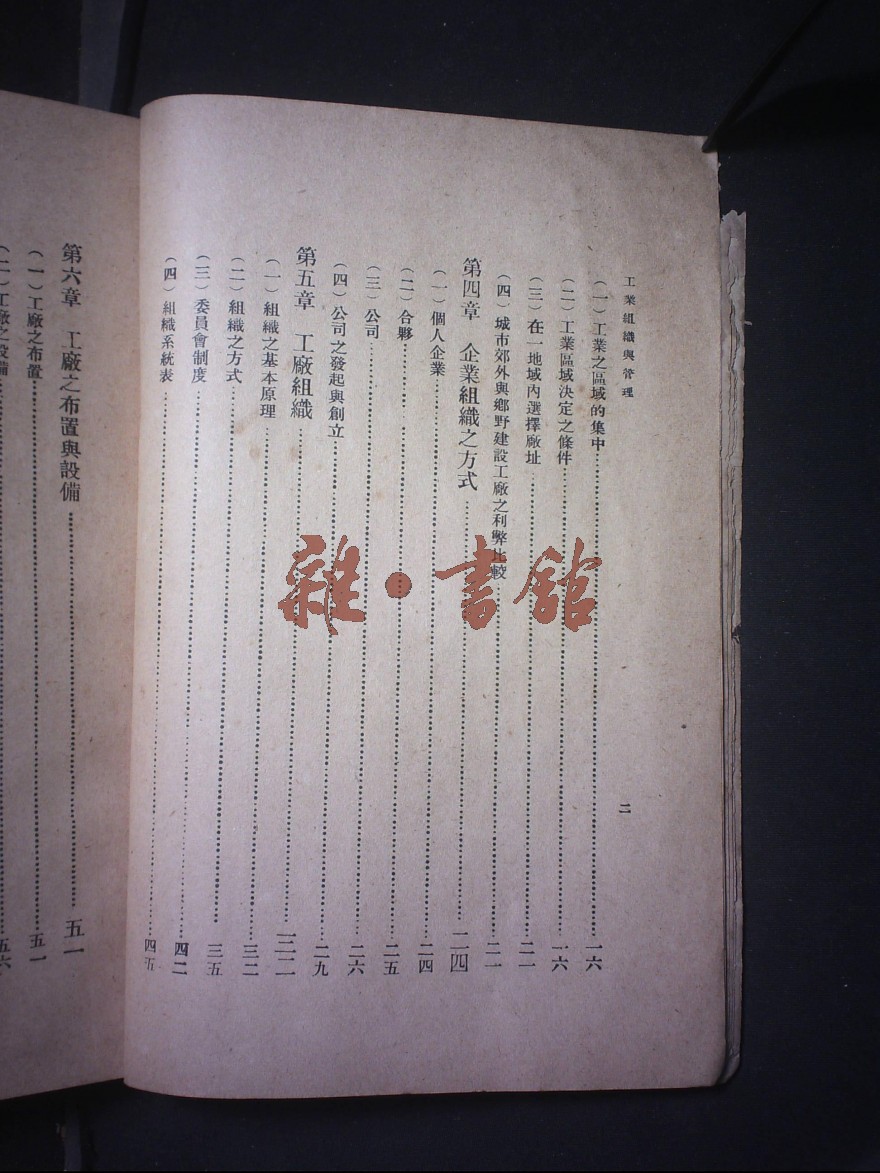 工業組織與管理
二
(一)工業之區域的集中……一六
(二)工業區域決定之條件……一六
(三)在一地域內選擇廠址……二一
(四)城市郊外與鄉野建設工廠之利弊比較……二一
第四章 企業組織之方式……二四
(一)個人企業……二四
(二)合夥……二五
(三)公司……二六
(四)公司之發起與創立……二九
第五章 工廠組織……三二
(一)組織之基本原理……三二
(二)組織之方式……三五
(三)委員會制度……四二
(四)組織系統表……四五
第六章 工廠之布置與設備……五一
(一)工廠之布置……五一
(二)工廠之設備……五六
雜·書館